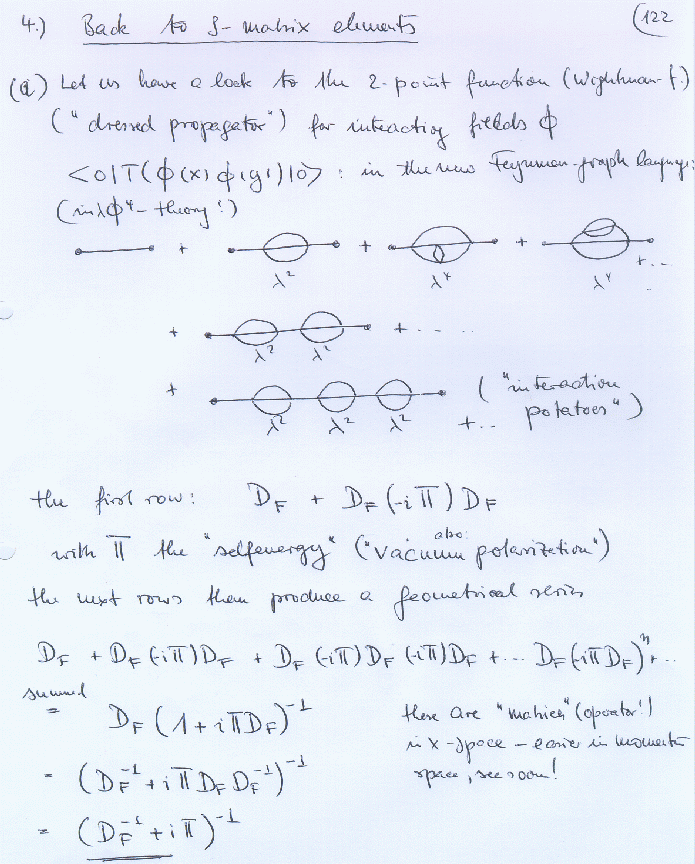 4.) Back to S-matrix elements (122
(a) Let us have a look to the 2-point function (Wightman-f.)
("dressed propagator") for interacting fields ϕ
<0|T(ϕ(x) ϕ(y))|0> : in the new Feynman-graph language:
(in λϕ⁴-theory!)
+ + + + ...
λ² λ⁴ λ⁴
+ + . . . . .
λ² λ²
+ ("interaction
potatoes")
λ² λ² λ² + ...
the first row: D_F + D_F (-i Π) D_F
also:
with Π the "selfenergy" ("vacuum polarization")
the next rows then produce a geometrical series
D_F + D_F (-iΠ) D_F + D_F (-iΠ) D_F (-iΠ) D_F + ... D_F (-iΠ D_F)ⁿ + ..
summed
= D_F (1 + i Π D_F)⁻¹ there are "matrices" (operator!)
in x-space – easier in momentum
= (D_F⁻¹ + i Π D_F D_F⁻¹)⁻¹ space, see soon!
= (D_F⁻¹ + i Π)⁻¹